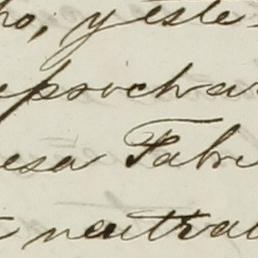 ho, y este
epocha
esa Fabri
neutral